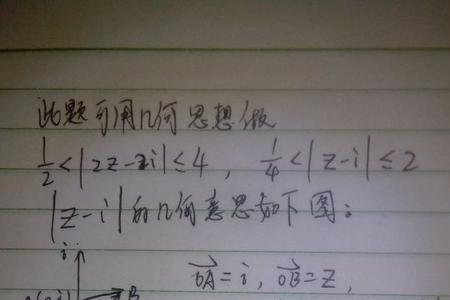 此题可用几何思想做
1/2 < |2z-2i| ≤ 4 , 1/4 < |z-i| ≤ 2
|z-i| 的几何意思如下图：
i
OA = i, OB = z,
B